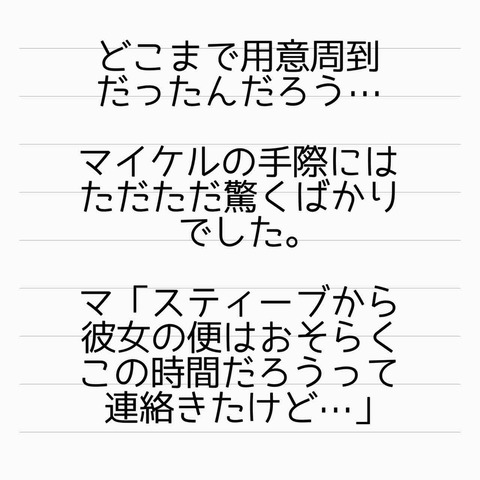 どこまで用意周到
だったんだろう…
マイケルの手際には
ただただ驚くばかり
でした。
マ「スティーブから
彼女の便はおそらく
この時間だろうって
連絡きたけど…」